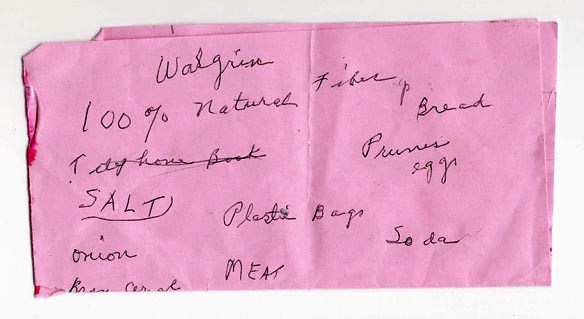 Walgrin
100% Natural Fiber
Bread
Telephone Book
Prunes
eggs
SALT
Plastic Bags
Soda
onion
MEAT
Bran Cereal